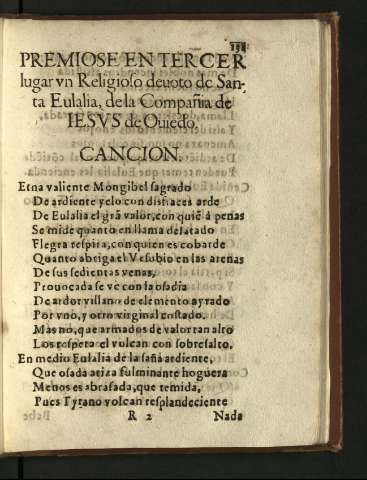 PREMIOSE EN TERCER
lugar vn Religioso deuoto de San-
ta Eulalia, de la Compañia de
IESVS de Ouiedo.
CANCION.
Etna valiente Mongibel sagrado
De ardiente yelo con disfraces arde
De Eulalia el grã valor, con quiẽ à penas
Se mide quanto en llama delatado
Flegra respira, con quien es cobarde
Quanto abriga el Vesubio en las arenas
De sus sedientas venas,
Prouocada se ve con la osadia
De ardor villano de elemento ayrado
Por vno, y otro virginal costado.
Mas no, que armados de valor tan alto
Los respeta el vulcan con sobresalto.
En medio Eulalia de la saña ardiente,
Que osada atiza fulminante hoguera
Menos es abrasada, que temida,
Pues Tytano volcan resplandeciente
R 2 Nada